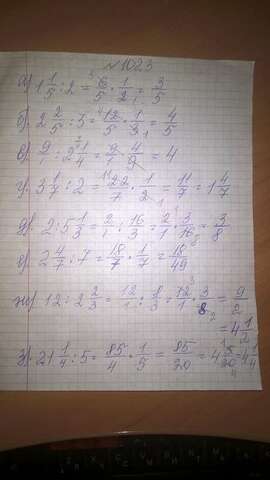 №1023
а) 1 1/5 : 2 = 6/5 · 1/2 = 3/5
б) 2 2/5 : 3 = 12/5 · 1/3 = 4/5
в) 9/1 : 2 1/4 = 9/1 · 4/9 = 4
г) 3 1/7 : 2 = 22/7 · 1/2 = 11/7 = 1 4/7
д) 2 : 5 1/3 = 2/1 : 16/3 = 2/1 · 3/16 = 3/8
е) 2 4/7 : 7 = 18/7 · 1/7 = 18/49
ж) 12 : 2 2/3 = 12/1 : 8/3 = 12/1 · 3/8 = 9/2
= 4 1/2
з) 21 1/4 : 5 = 85/4 · 1/5 = 85/20 = 4 5/20 = 4 1/4